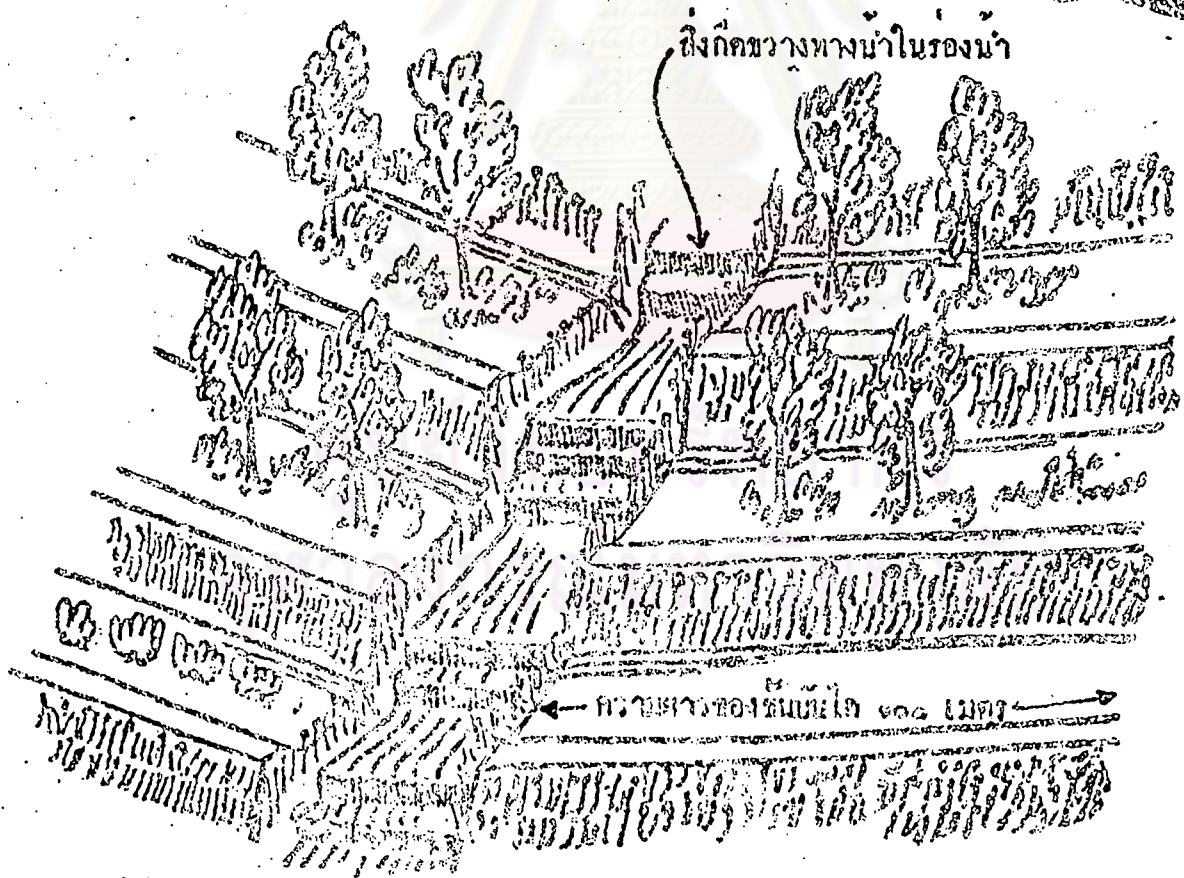 สิ่งกีดขวางทางน้ำในร่องน้ำ
ความยาวของขั้นบันได ๑๐๐ เมตร